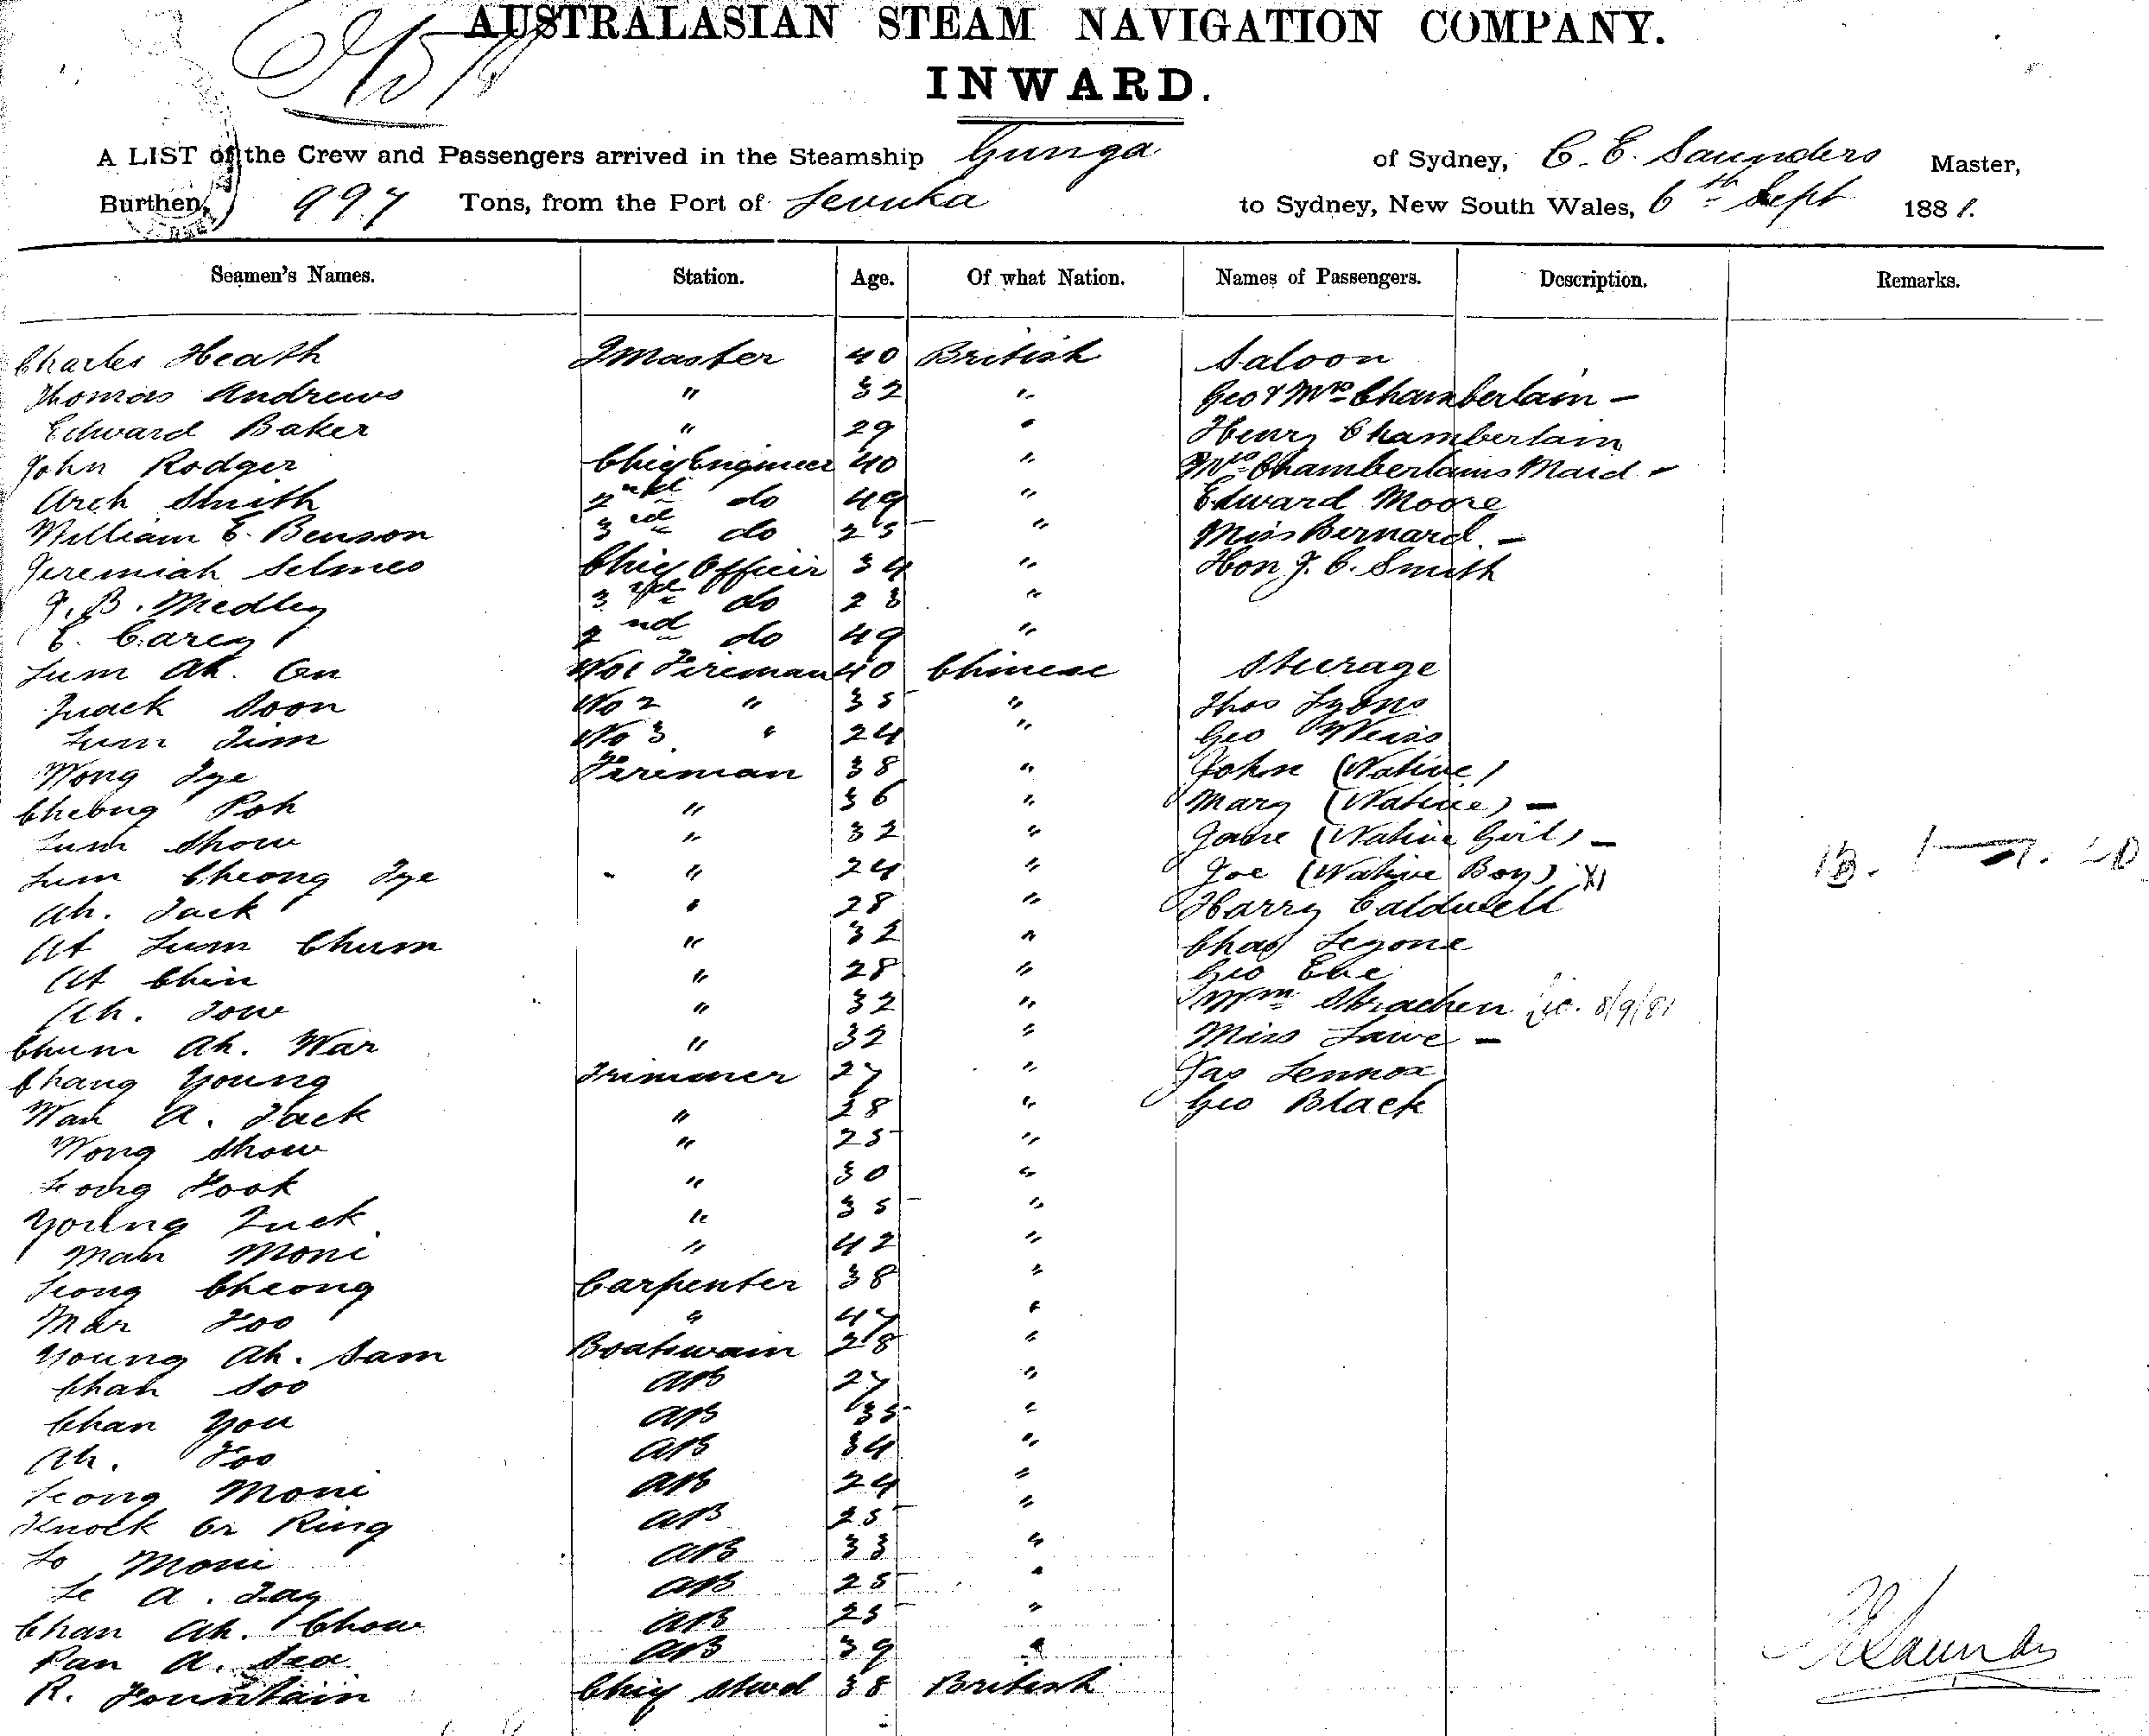 AUSTRALASIAN STEAM NAVIGATION COMPANY.
INWARD.
A LIST of the Crew and Passengers arrived in the Steamship Gunga of Sydney, C. E. Saunders Master,
Burthen, 997 Tons, from the Port of Levuka to Sydney, New South Wales, 6th Sept 1881.
Seamen's Names. Station. Age. Of what Nation. Names of Passengers. Description. Remarks.
Charles Heath QMaster 40 British Saloon
Thomas Andrews " 32 " Geo & Mrs Chamberlain -
Edward Baker " 29 " Henry Chamberlain
John Rodger Chief Engineer 40 " Mrs Chamberlains Maid -
Arch Smith 2nd do 49 " Edward Moore
William E. Benson 3rd do 25 " Miss Bernard. -
Jeremiah Selmes Chief Officer 34 " Hon J. C. Smith
J. B. Medley 3rd do 23 "
E. Carey 2nd do 49 "
Lum Ah. On No 1 Fireman 40 Chinese Steerage
Quack Soon No 2 " 35 " Thos Lyons
Lum Tim No 3 " 24 " Geo Weiss
Wong Tye Fireman 38 " John (Native)
Cheong Poh " 36 " Mary (Native) -
Lum Show " 32 " Jane (Native Girl) -
Lum Cheong Tye " 24 " Joe (Native Boy)
Ah. Jack " 28 " Harry Caldwell
At Lum Chum " 32 " Chas
At Chin " 28 " Geo
Ah. Tow " 32 " Wm Strachen 8/9/81
Chum Ah. War " 32 " Miss Lawe -
Chang Young Trimmer 27 " Jas Lennox
Wah A. Jack " 28 " Geo Black
Wong Show " 25 "
Leong Fook " 30 "
Young Quck " 35 "
Mah Moni " 42 "
Leong Cheong Carpenter 38 "
Mar Foo " 47 "
Young Ah. Sam Boatswain 28 "
Chah Soo AB 27 "
Chan You AB 35 "
Ah. Foo AB 34 "
Leong Moni AB 24 "
Knock Or Ring AB 25 "
Lo Moni AB 33 "
Le A. Day AB 25 "
Chan Ah. Chow AB 25 "
Pan A. AB 39 "
R. Fountain Chief Stwd 38 British
C E Saunders